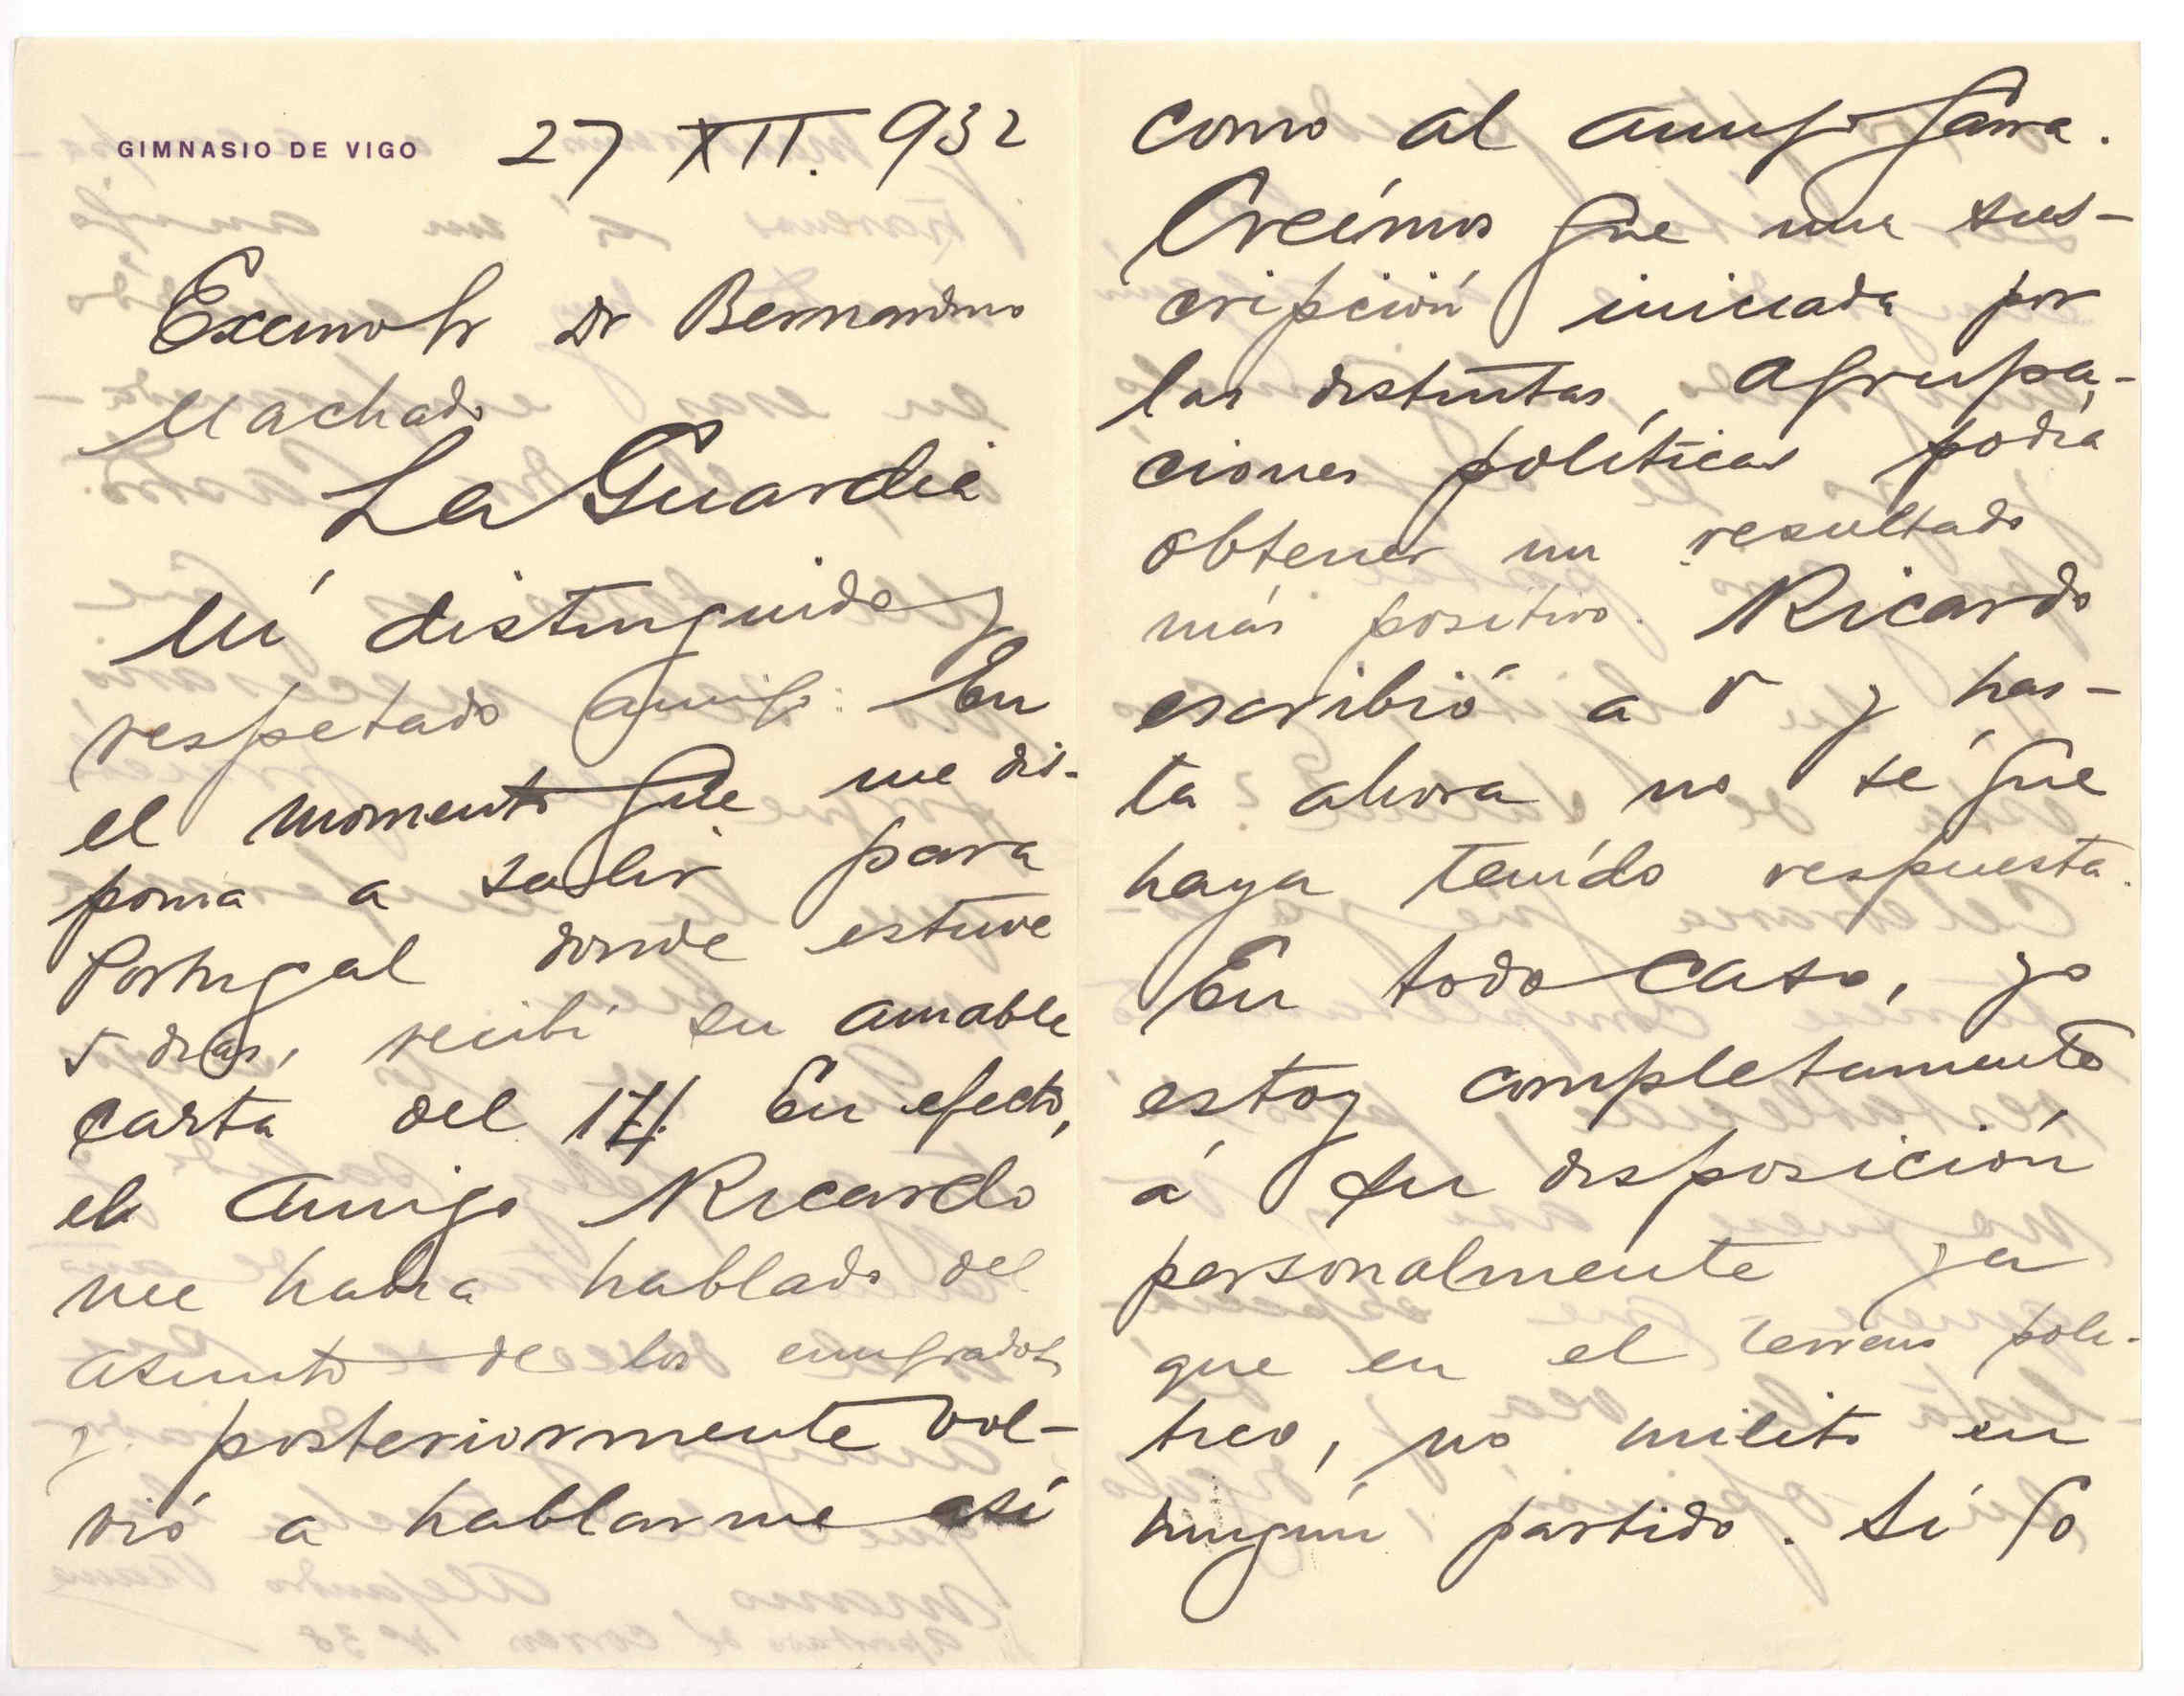 GIMNASIO DE VIGO 27 XII. 932
Excmo Sr Dr Bernardino
Machado
La Guardia
Mi distinguido y
respetado amigo: En
el momento que me dis-
ponia a salir para
Portugal donde estuve
5 dias, recibí su amable
carta del 17. En efecto,
el amigo Ricardo
me habia hablado del
asunto de los emigrados
y posteriormente vol-
vió a hablarme así
como al amigo
Creémos que una sus-
cripción iniciada por
las distintas agrupa-
ciones políticas podia
obtener un resultado
más positivo. Ricardo
escribió a V y has-
ta ahora no sé que
haya tenído respuesta.
En todo caso, yo
estoy completamente
á su disposición
personalmente ya
que en el terreno poli-
tico, no milito en
ningún partido. Si